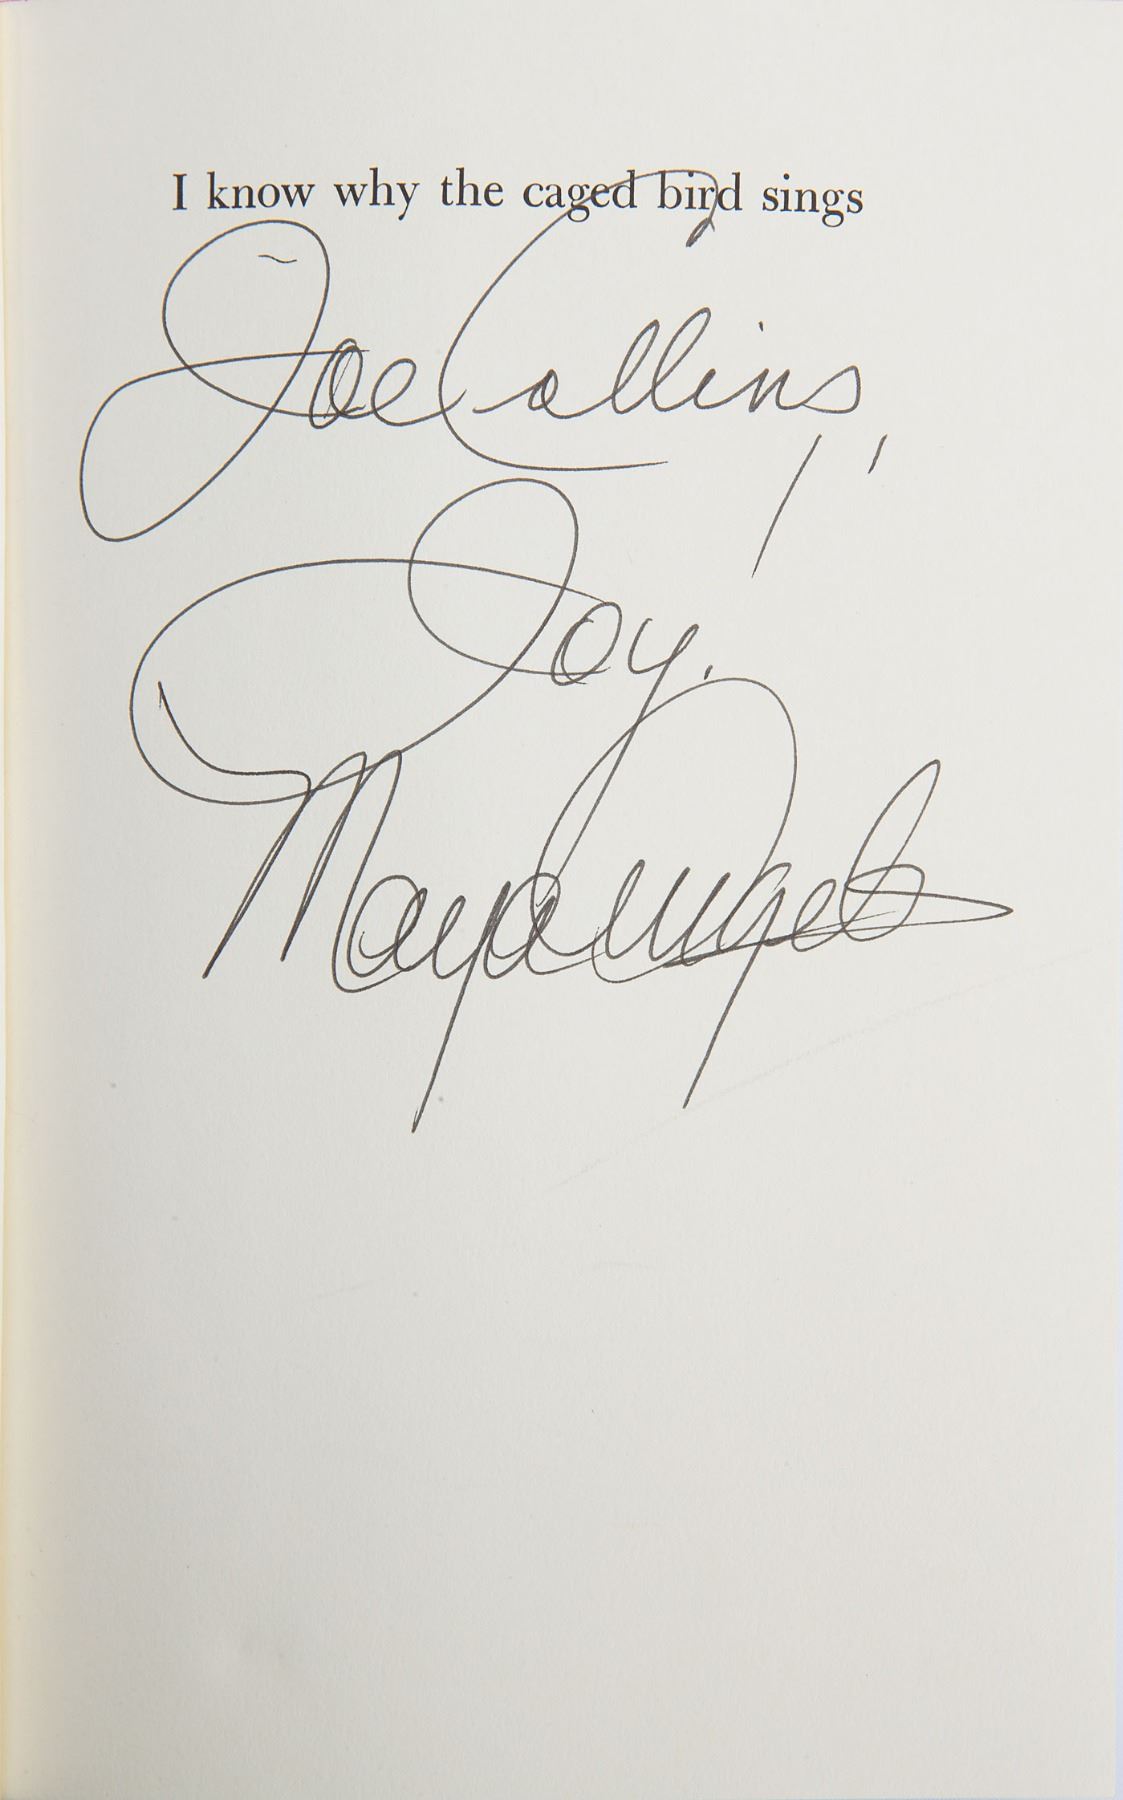 I know why the caged bird sings
Joe Collins,
Joy.
Maya Angelou